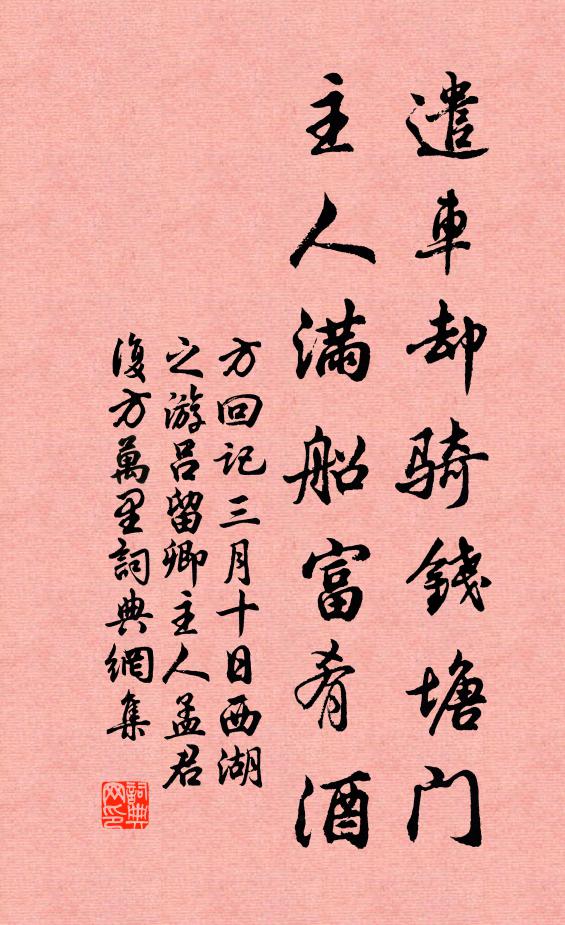 遣車却騎錢塘门
主人滿船富肴酒
方回记三月十日西湖
之游吕留卿主人孟君
復方萬里詞典網集
詞典网印